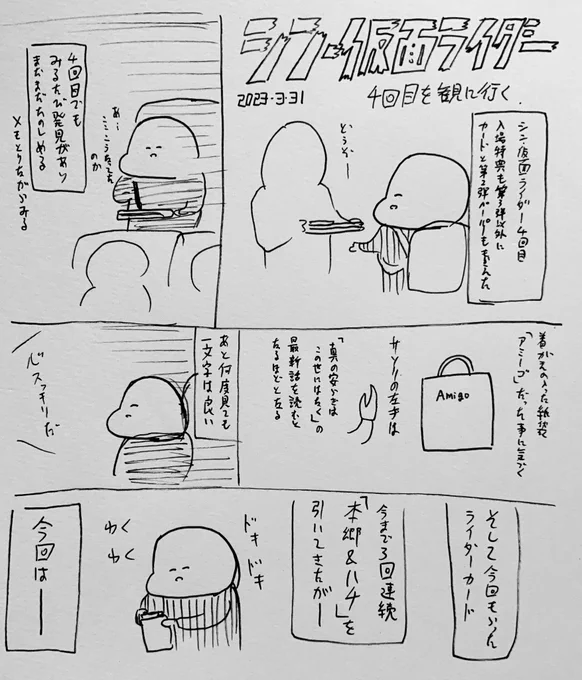 シン・仮面ライダー
2023・3・31
4回目を観に行く.
シン・仮面ライダー4回目
入場特典も第3弾以外に
カードと第2弾ペーパーももらえた
どうぞー
4回目でも
みるたび発見があり
まだまだたのしめる
メモとりながらみる
あー
こここうなってた
のか
着がえの入った紙袋
「アミーゴ」だった事に気づく
Amigo
サソリの左手は
「真の安らぎは
この世になく」の
最新話を読むと
なるほどとなる
あと何度見ても
一文字は良い
心スッキリだ
そして今回もらった
ライダーカード
今まで3回連続
「本郷&ハチ」を
引いてきたがー
ドキドキ
わくわく
今回はー